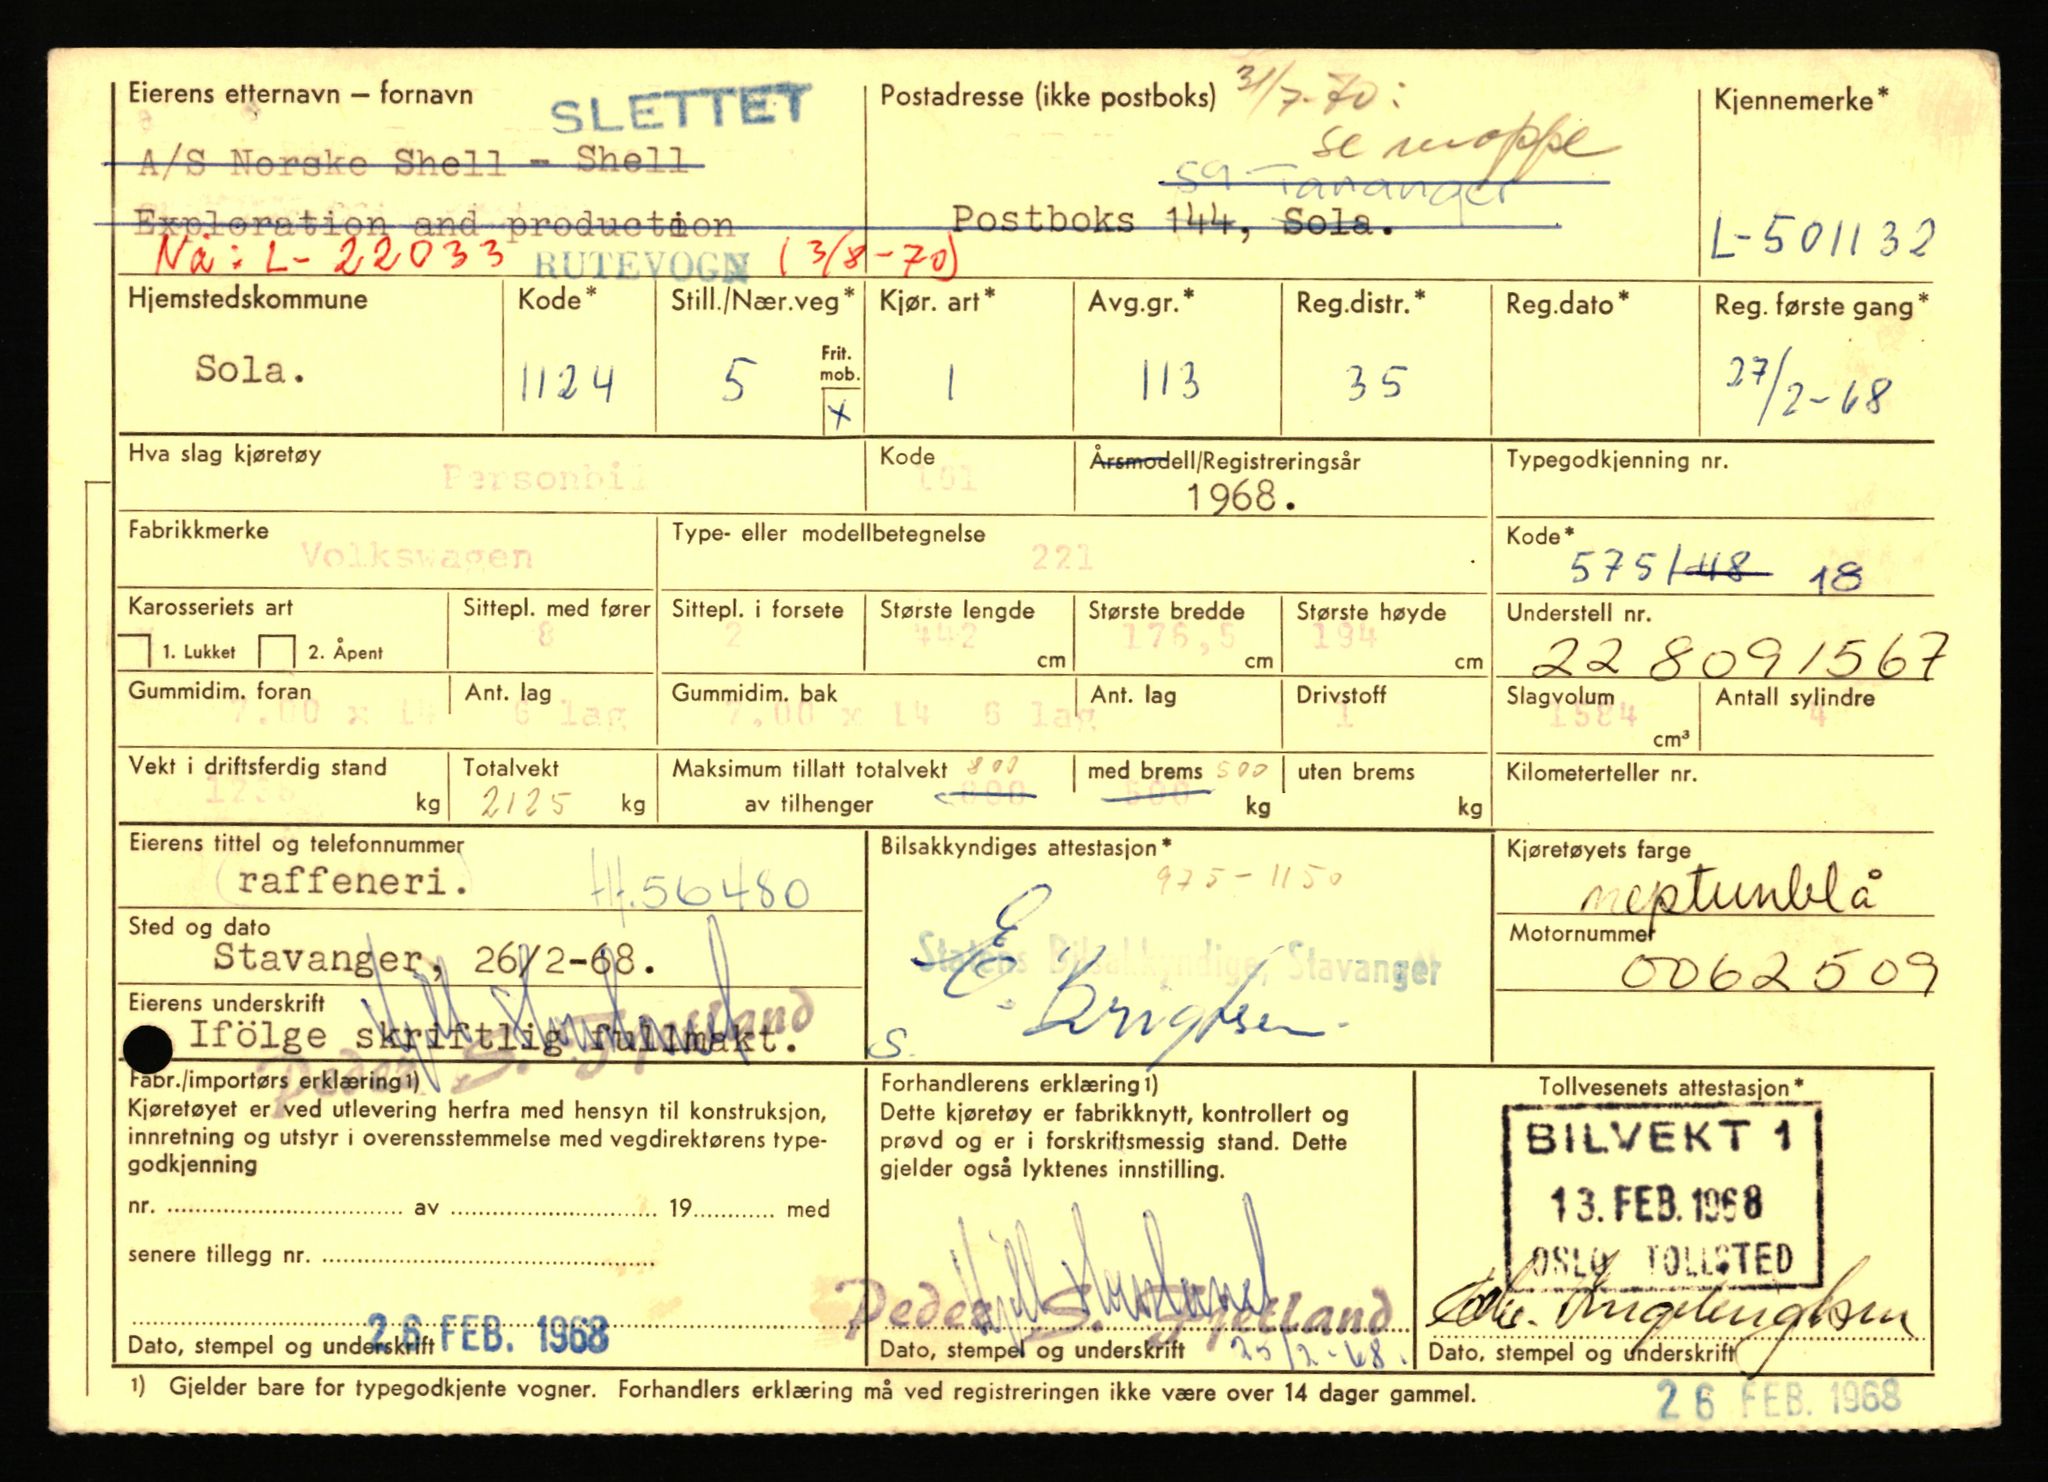 Eierens etternavn – fornavn
SLETTET
Postadresse (ikke postboks)
31/7-70:
se mappe
Kjennemerke*
A/S Norske Shell - Shell
59 Tananger
Exploration and production
Postboks 144, Sola.
L-501132
Nå: L-22033 RUTEVOGN (3/8-70)
Hjemstedskommune Kode* Still./Nær.veg* Kjør. art* Avg.gr.* Reg.distr.* Reg.dato* Reg. første gang*
Frit. mob.
Sola. 1124 5 x 1 113 35 27/2-68
Hva slag kjøretøy Kode Årsmodell/Registreringsår Typegodkjenning nr.
Personbil 101 1968.
Fabrikkmerke Type- eller modellbetegnelse Kode*
Volkswagen 221 575/48 18
Karosseriets art Sittepl. med fører Sittepl. i forsete Største lengde Største bredde Største høyde Understell nr.
8 2 442 176,5 194
1. Lukket 2. Åpent cm cm cm 228091567
Gummidim. foran Ant. lag Gummidim. bak Ant. lag Drivstoff Slagvolum Antall sylindre
7.00 x 14 6 lag 7.00 x 14 6 lag 1 1584 4
cm³
Vekt i driftsferdig stand Totalvekt Maksimum tillatt totalvekt 800 med brems 500 uten brems Kilometerteller nr.
kg 2125 kg av tilhenger kg kg
Eierens tittel og telefonnummer Bilsakkyndiges attestasjon* Kjøretøyets farge
(raffeneri.) tlf. 56480 975-1150 neptunblå
Sted og dato Motornummer
Stavanger, 26/2-68. Statens Bilsakkyndige, Stavanger 0062509
Eierens underskrift
Ifölge skriftlig fullmakt.
Peder S. Fjetland
S.
Fabr./importørs erklæring1) Forhandlerens erklæring1) Tollvesenets attestasjon*
Kjøretøyet er ved utlevering herfra med hensyn til konstruksjon,
innretning og utstyr i overensstemmelse med vegdirektørens type-
godkjenning
Dette kjøretøy er fabrikknytt, kontrollert og
prøvd og er i forskriftsmessig stand. Dette
gjelder også lyktenes innstilling.
BILVEKT 1
13. FEB. 1968
OSLO TOLLSTED
nr. av 19 med
senere tillegg nr.
Peder S. Fjetland
26 FEB. 1968
Dato, stempel og underskrift Dato, stempel og underskrift 25/2-68. Dato, stempel og underskrift
1) Gjelder bare for typegodkjente vogner. Forhandlers erklæring må ved registreringen ikke være over 14 dager gammel.
26 FEB. 1968